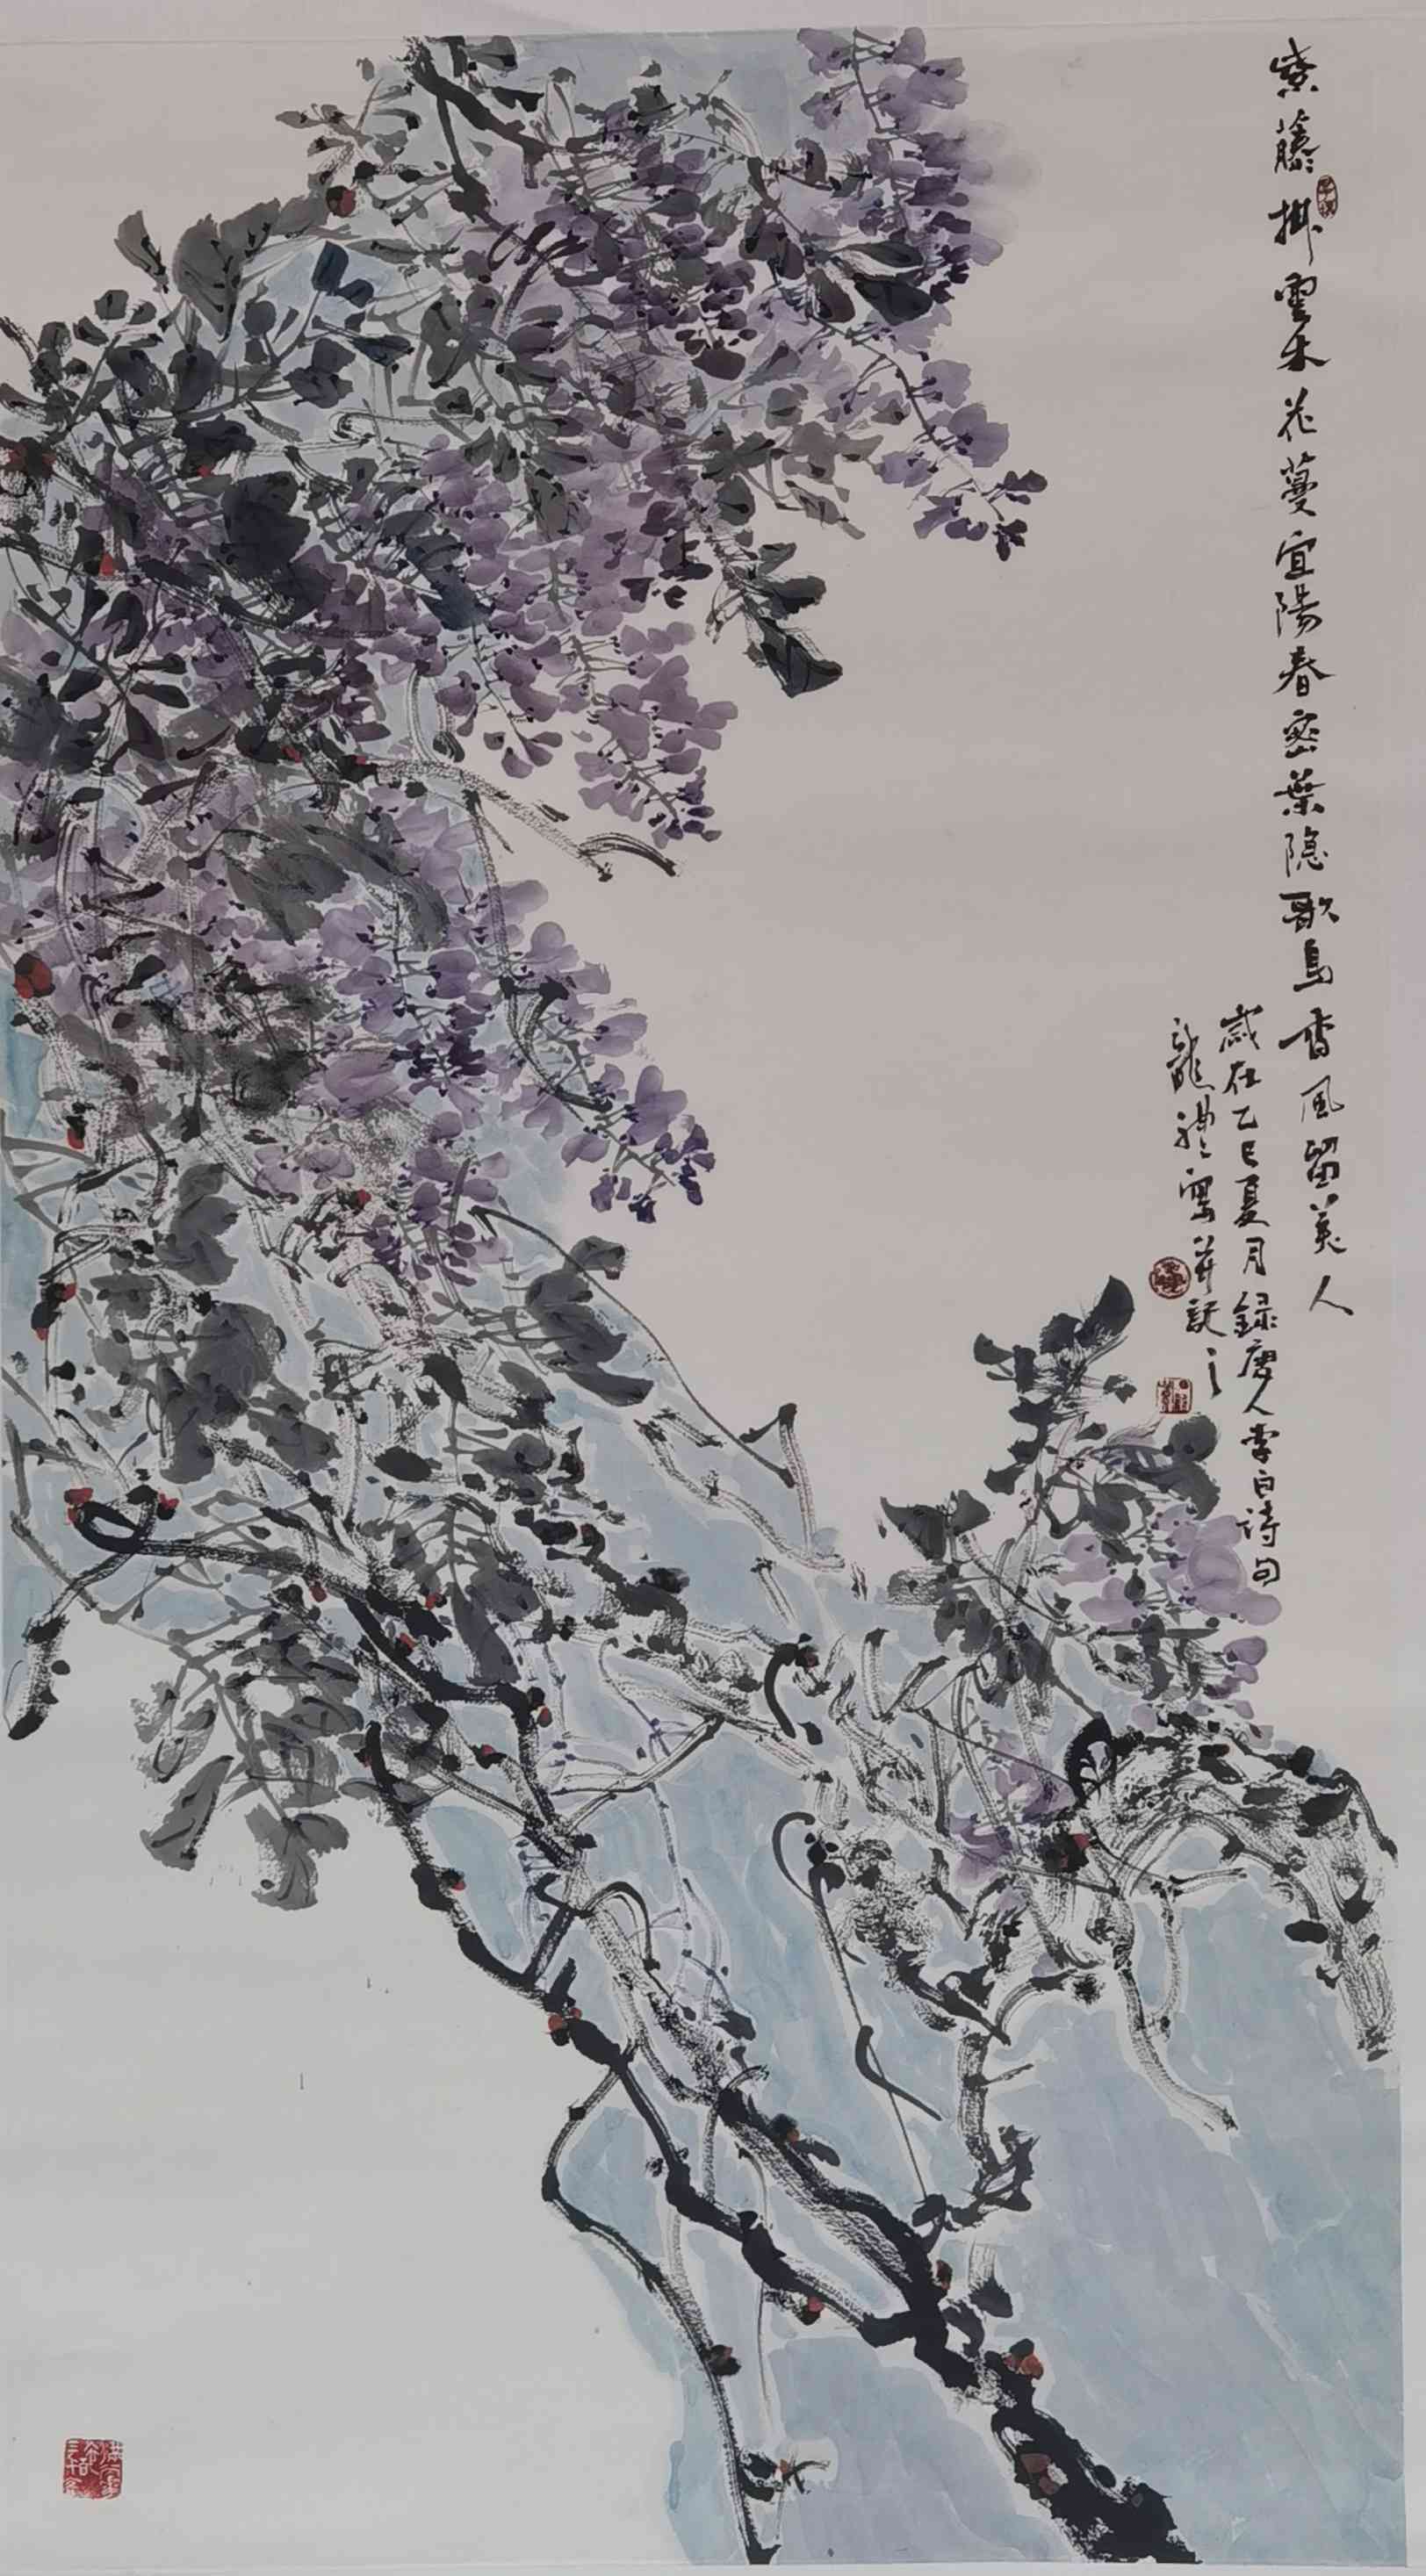 紫藤掛雲木花蔓宜陽春密葉隐歌鳥香風留美人
歲在乙巳夏月録唐人李白詩句
龍禮寫並記之